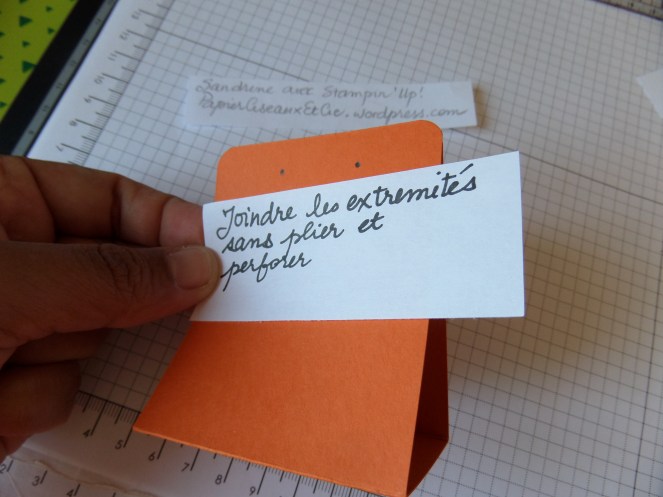 Sandrine aux Stampin'Up!
PapierCiseauxEtCie.wordpress.com
Joindre les extremités
sans plier et
perforer
4
5
6
7
8
9